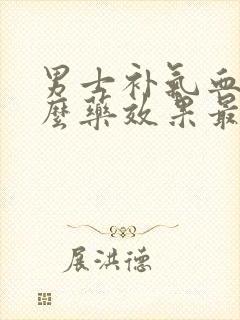 男士补气血
麽药效果最
展洪德